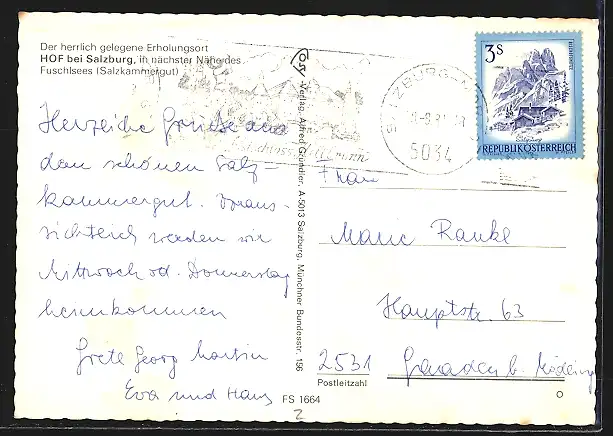 Der herrlich gelegene Erholungsort
HOF bei Salzburg, in nächster Nähe des
Fuschlsees (Salzkammergut)
Herzliche Grüsse aus
dem schönen Salz-
kammergut. Voraus-
sichtlich werden wir
Mittwoch od. Donnerstag
heimkommen
Grete Georg Martin
Eva und Hans
FS 1664
Verlag Alfred Gründler, A-5013 Salzburg, Münchner Bundesstr. 156
SALZBURG
5034
3S
REPUBLIK ÖSTERREICH
Frau
Marie Ranke
Hauptstr. 63
2531 Gaaden b. Mödling
Postleitzahl